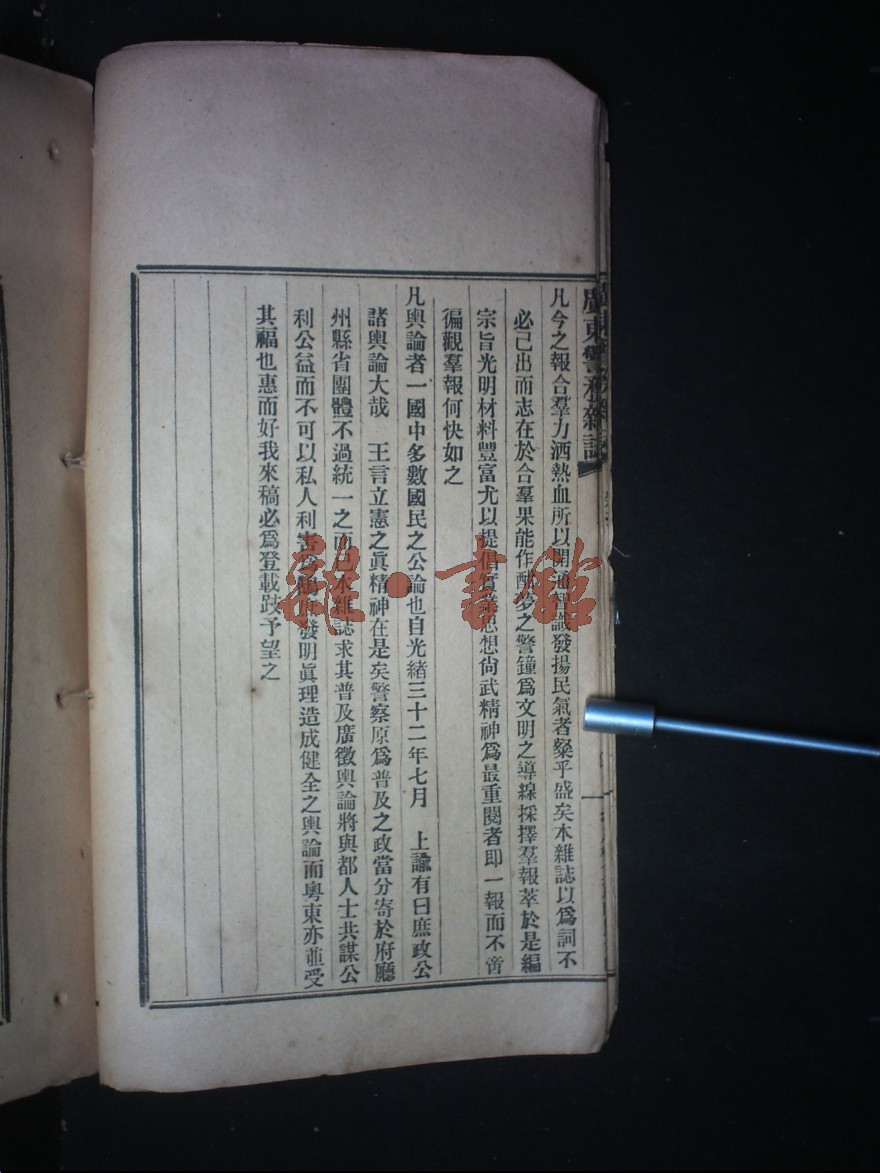 廣東警務雜誌
凡今之報合羣力洒熱血所以開通智識發揚民氣者粲乎盛矣本雜誌以爲詞不
必己出而志在於合羣果能作酣夢之警鐘爲文明之導線採擇羣報萃於是編
宗旨光明材料豐富尤以提倡實業思想尚武精神爲最重閱者即一報而不啻
徧觀羣報何快如之
凡輿論者一國中多數國民之公論也自光緒三十二年七月 上諭有曰庶政公
諸輿論大哉 王言立憲之眞精神在是矣警察原爲普及之政當分寄於府廳
州縣省團體不過統一之而已本雜誌求其普及廣徵輿論將與都人士共謀公
利公益而不可以私人利害爲發明眞理造成健全之輿論而粤東亦並受
其福也惠而好我來稿必爲登載跂予望之
雜·書館